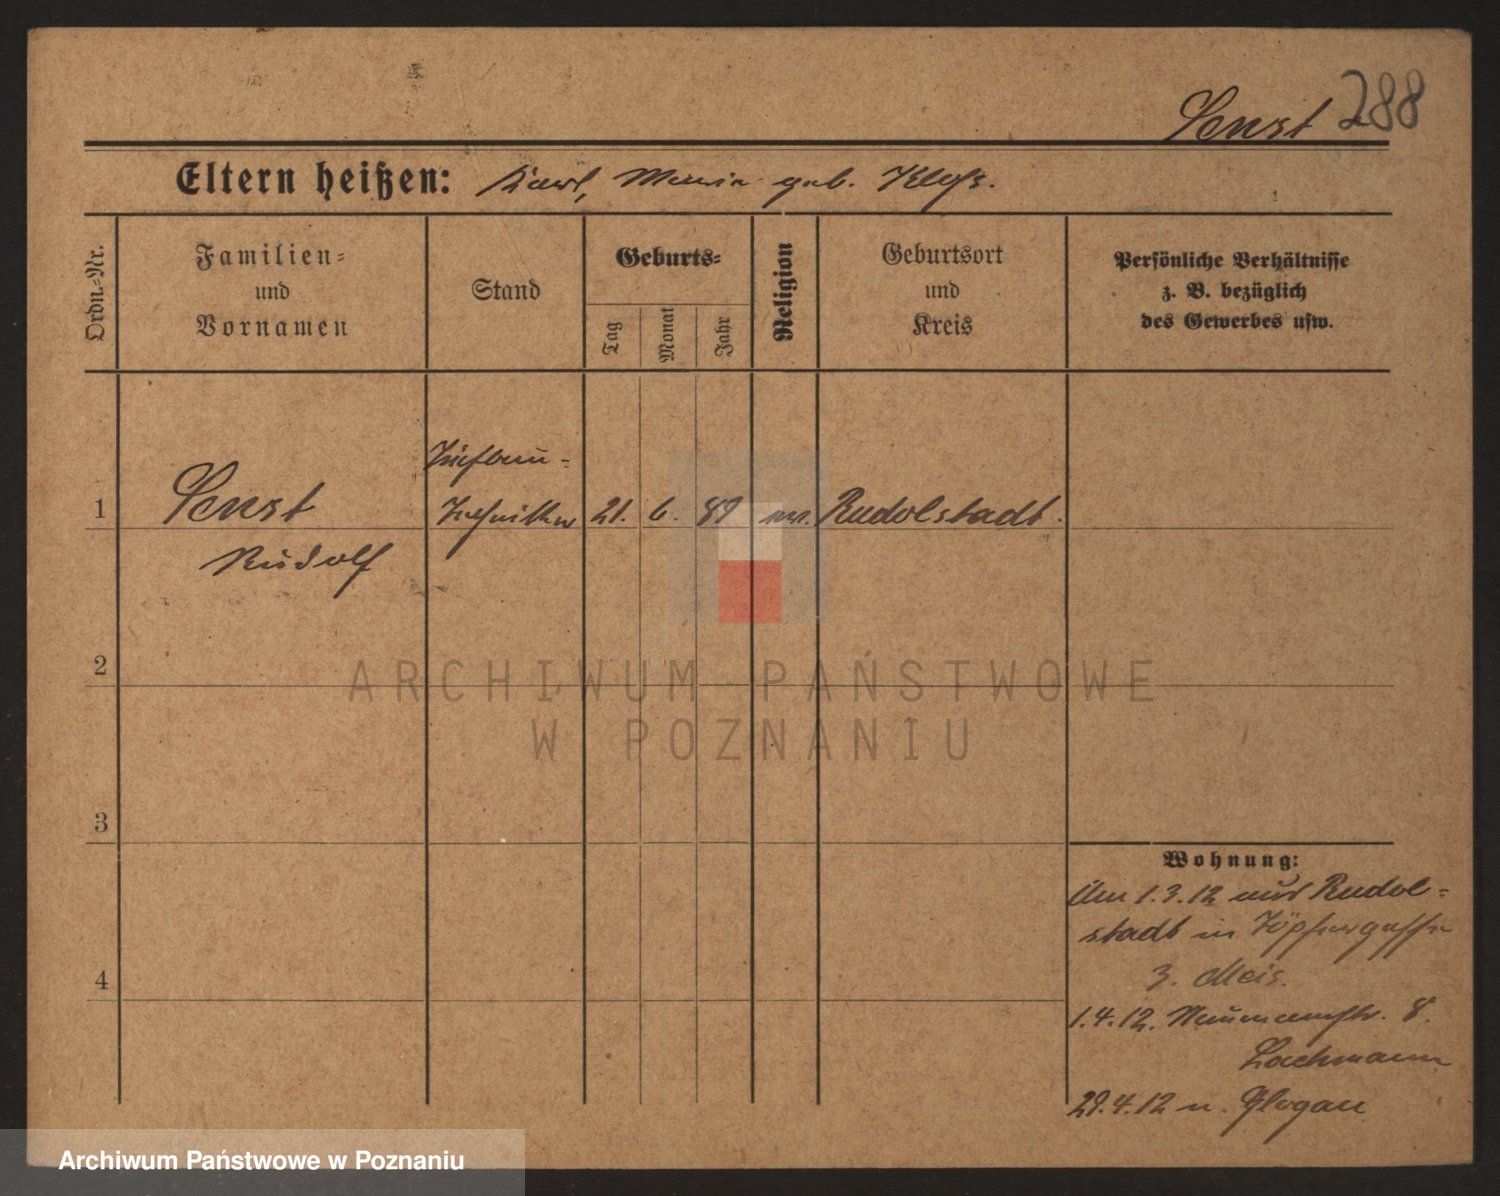 Senst 288
Eltern heißen: Karl, Maria geb. Kloß.
Ordn.-Nr.
Familien-
und
Vornamen
Stand
Geburts-
Tag
Monat
Jahr
Religion
Geburtsort
und
Kreis
Persönliche Verhältnisse
z. B. bezüglich
des Gewerbes usw.
Tiefbau-
1 Senst Techniker 21. 6. 89 Rudolstadt.
Rudolf
2
3
4
Wohnung:
Am 1.3.12 aus Rudol-
stadt in Töpfergasse
3.
1.4.12. Naumannstr. 8.
Lachmann
29.4.12 n. Glogau
ARCHIWUM PAŃSTWOWE
W POZNANIU
Archiwum Państwowe w Poznaniu